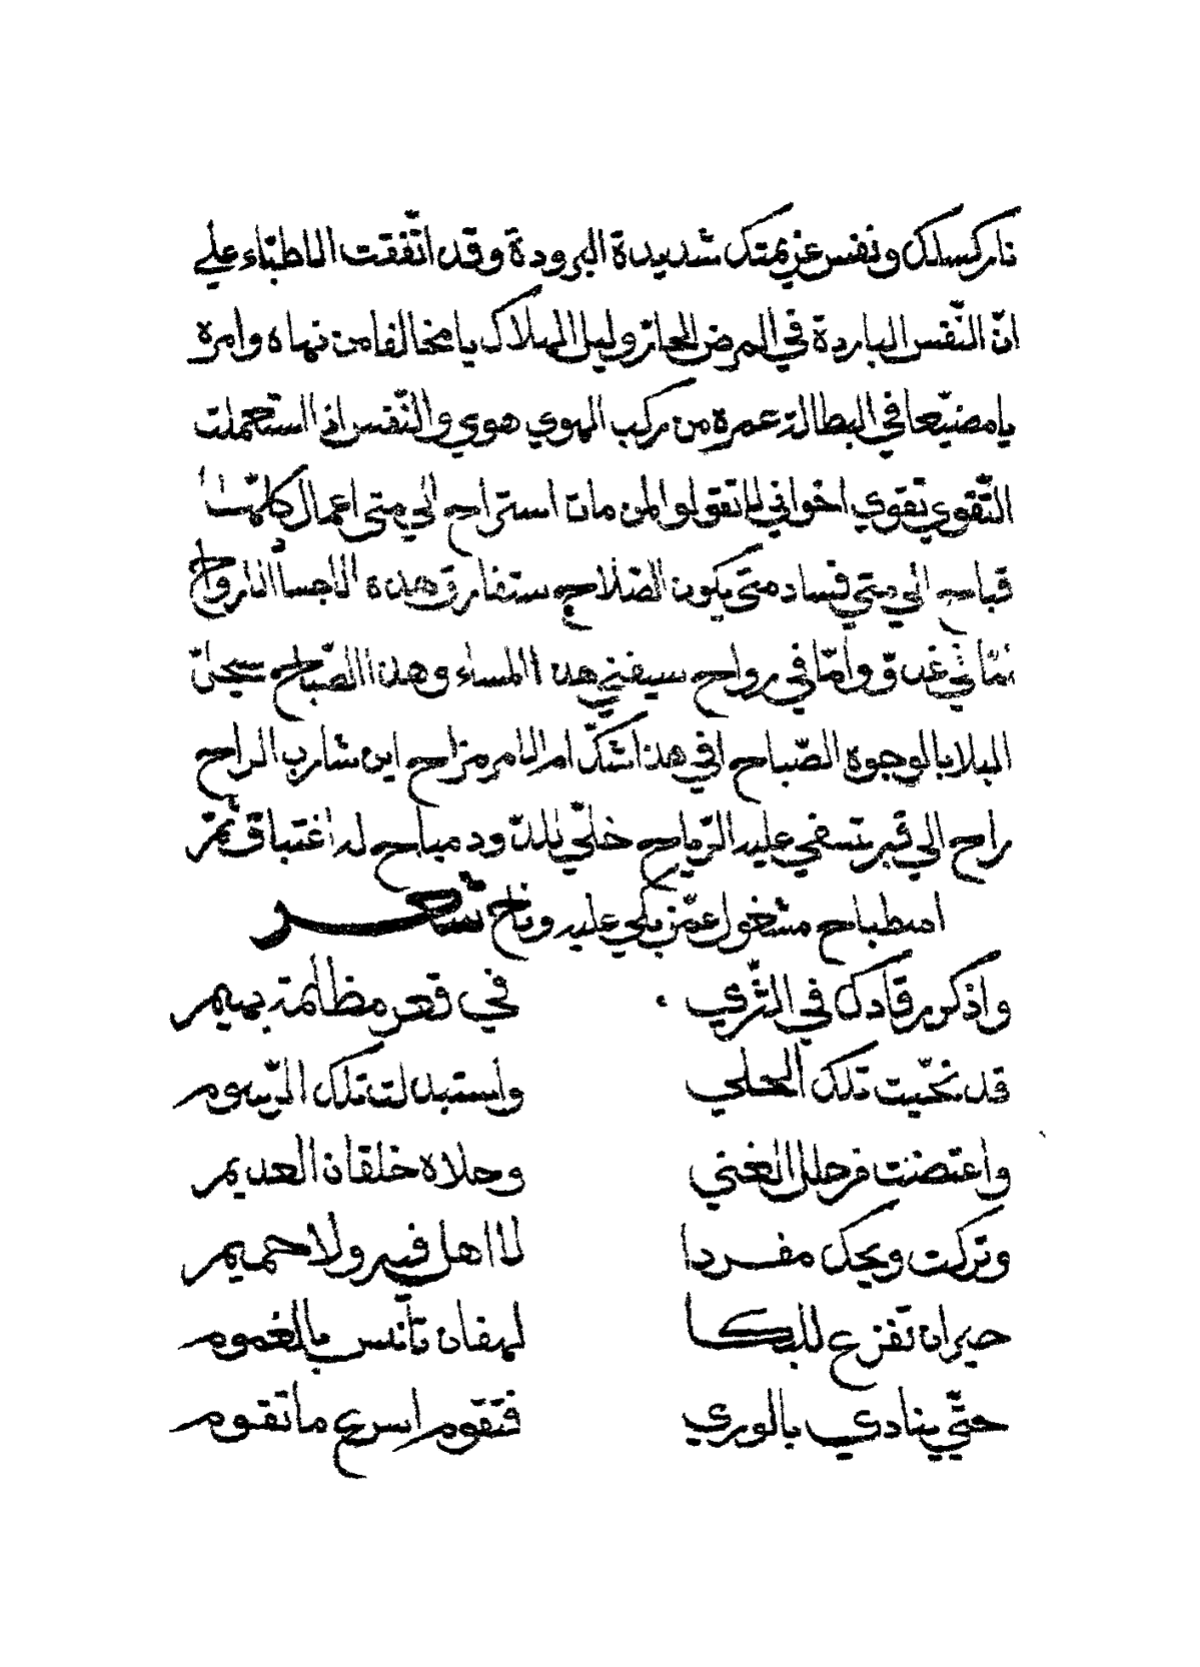 نار كسلك ونفس عزيمتك شديدة البرودة وقد اتّفقت الاطبّاء علي
انّ النّفس الباردة في المرض الحارّ دليل الهلاك يا مخالفا من نهاه وامره
يا مضيّعا في البطالة عمره من ركب الهوي هوي والنّفس اذا استعملت
التّقوي تقوي اخواني لا تقولوا لمن مات استراح الي متى اعمال كلّها
قباح الي متي فساد متى يكون الصّلاح ستفارق هذه الاجساد الارواح
امّا في غدوّ وامّا في رواح سيفني هذا المساء وهذا الصّباح سيحلّ
البلا بالوجوه الصّباح افي هذا شكّ ام الامر مزاح اين شارب الراح
راح الي قبر تسفي عليه الرّياح خلّي للدّود مباح له اغتباق ثمّ
اصطباح مشغول عمّن بكي عليه وناح شعر
واذكر رقادك في الثّري في قعر مظلمة بهيم
قد نحّيت تلك الحلي واستبدلت تلك الرّسوم
واعتضت من حلل الغني وحلاه خلقان العديم
وتركت ويحك مفردا لا اهل فيه ولا حميم
حيران تفزع للبكا لهفان تأنس بالغموم
حتّي ينادي بالوري فتقوم اسرع ما تقوم